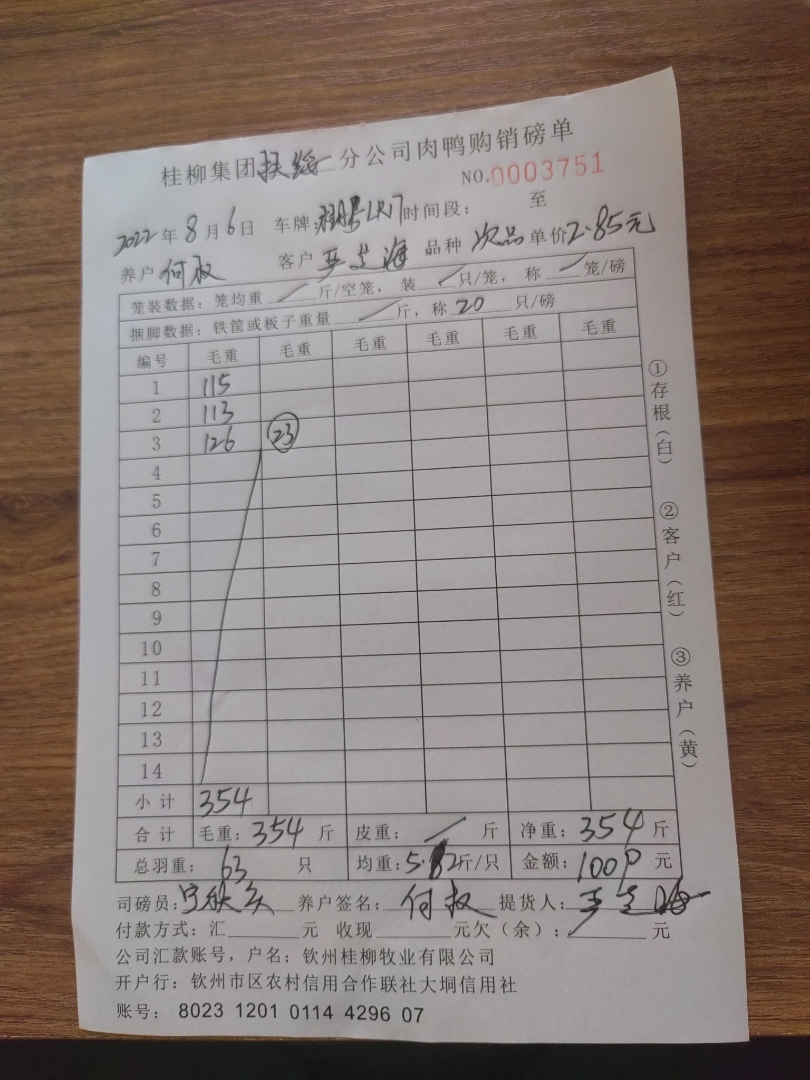 桂柳集团扶绥分公司肉鸭购销磅单
NO.0003751
2022年8月6日 车牌: 时间段: 至
养户 何叔 客户 海 品种 次品 单价2.85元
笼装数据:笼均重 / 斤/空笼,装 / 只/笼,称 / 笼/磅
捆脚数据:铁筐或板子重量 / 斤,称 20 只/磅
编号 毛重 毛重 毛重 毛重 毛重 毛重
1 115
2 113
3 126 23
4
5
6
7
8
9
10
11
12
13
14
小计 354
合计 毛重:354斤 皮重: / 斤 净重:354斤
总羽重:63 只 均重:5.62斤/只 金额:1009元
司磅员: 养户签名: 提货人:
付款方式:汇 元 收现 元欠(余): 元
公司汇款账号,户名:钦州桂柳牧业有限公司
开户行:钦州市区农村信用合作联社大垌信用社
账号: 8023 1201 0114 4296 07
①存根(白)
②客户(红)
③养户(黄)